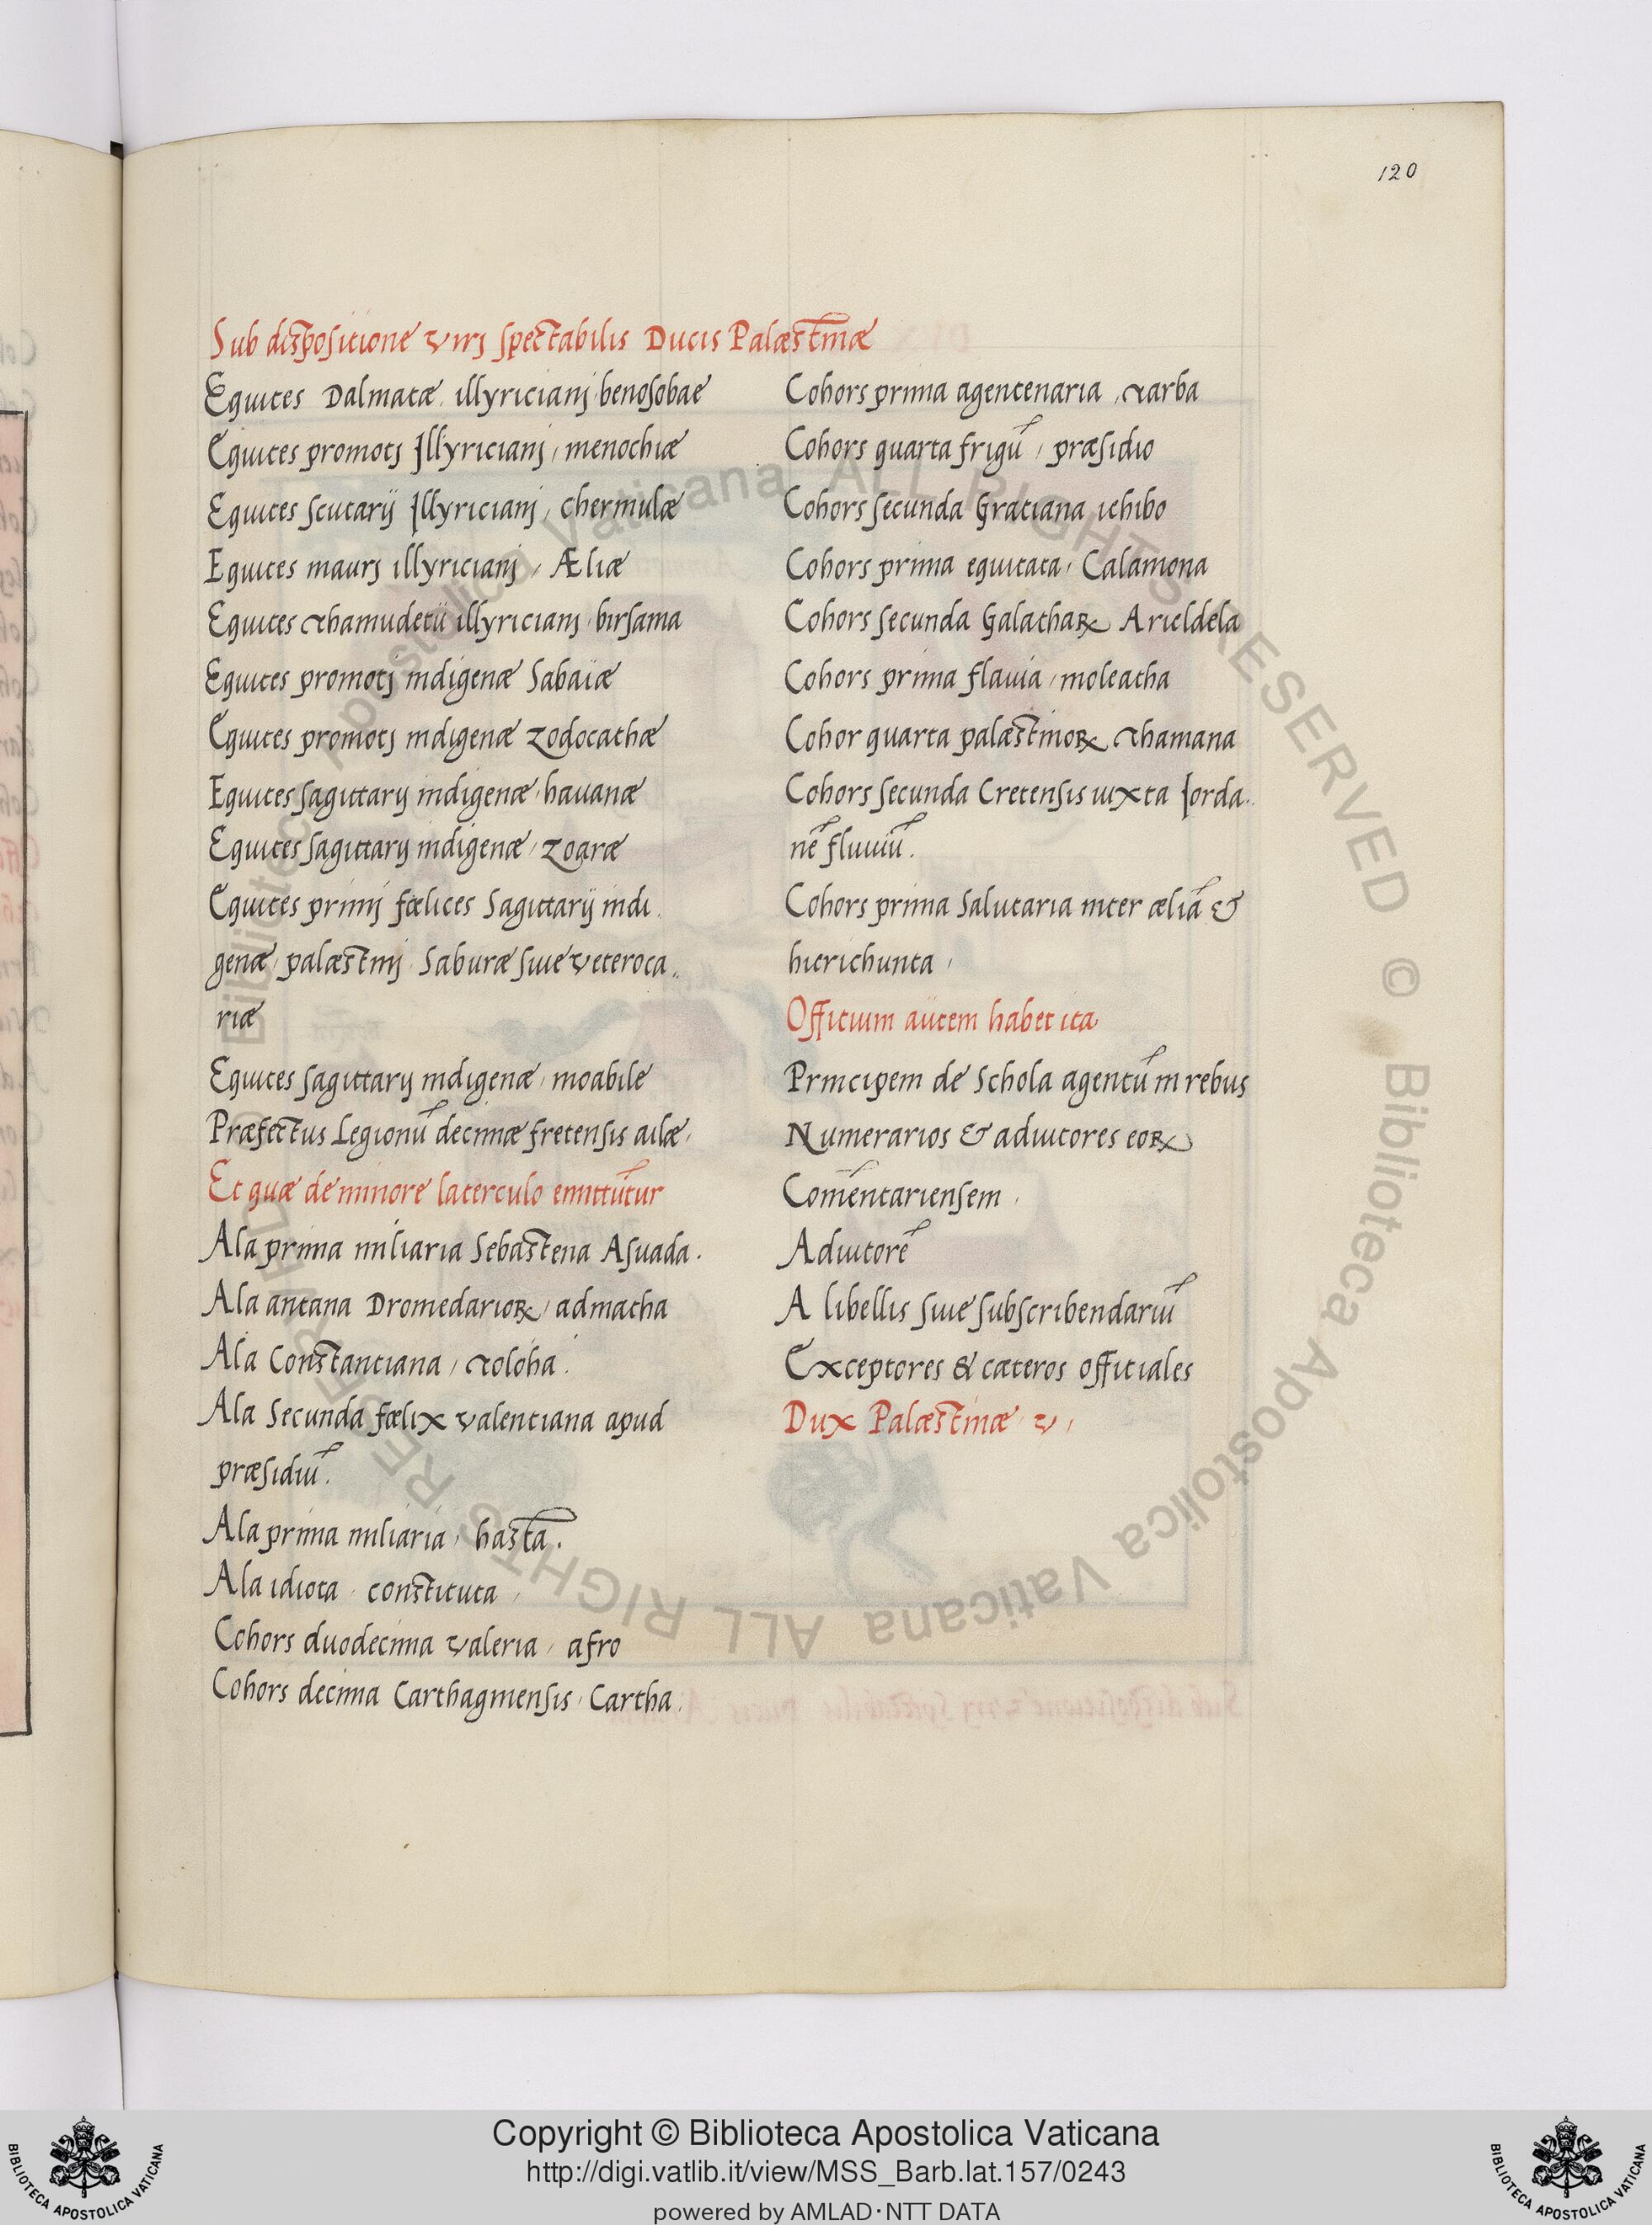 120
Sub dispositione virj spectabilis Ducis Palæstinæ
Equites Dalmatæ illyricianj benosobae
Equites promotj Jllyricianj, menochiæ
Equites scutarij Jllyricianj, chermulæ
Equites maurj illyricianj, Æliæ
Equites thamudetii illyricianj birsama
Equites promotj indigenæ Sabaiæ
Equites promotj indigenæ zodocathæ
Equites sagittarij indigenæ hauanæ
Equites sagittarij indigenæ, zoaræ
Equites primj fœlices Sagittarij indi
genæ palæstinj Saburæ siue veteroca
riæ
Equites sagittarij indigenæ, moabile
Præfectus Legionū decimæ fretensis ailæ
Et quæ de minore laterculo emittūtur
Ala prima miliaria Sebastena Asuada.
Ala antana Dromedarioꝝ, admatha
Ala Constantiana, toloha.
Ala Secunda fœlix valentiana apud
præsidiū.
Ala prima miliaria, hasta.
Ala idiota constituta,
Cohors duodecima valeria, afro
Cohors decima Carthaginensis, Cartha.
Cohors prima agentenaria, tarba
Cohors quarta frigū, præsidio
Cohors secunda Gratiana ichibo
Cohors prima equitata, Calamona
Cohors secunda Galathaꝝ Arieldela
Cohors prima flauia, moleatha
Cohor quarta palæstinoꝝ thamana
Cohors secunda Cretensis iuxta Jorda
nē fluuiū.
Cohors prima Salutaria inter æliā &
hierichunta,
Offitium autem habet ita
Principem de Schola agentū in rebus
Numerarios & adiutores eoꝝ
Com̄entariensem.
Adiutorē
A libellis siue subscribendariū
Exceptores & cæteros offitiales
Dux Palæstinæ v,
Copyright © Biblioteca Apostolica Vaticana
http://digi.vatlib.it/view/MSS_Barb.lat.157/0243
powered by AMLAD·NTT DATA
BIBLIOTECA APOSTOLICA VATICANA
BIBLIOTECA APOSTOLICA VATICANA
© Biblioteca Apostolica Vaticana ALL RIGHTS RESERVED
© Biblioteca Apostolica Vaticana ALL RIGHTS RESERVED